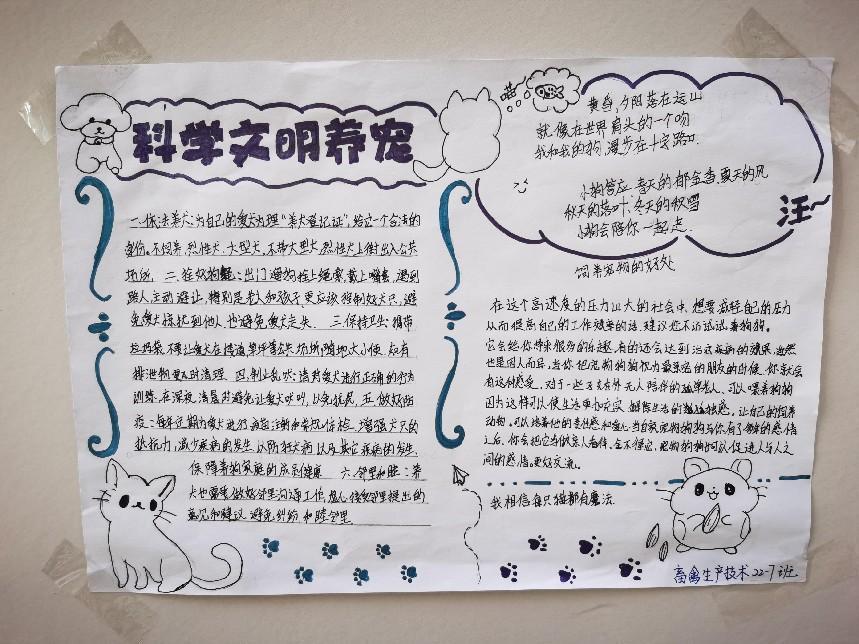 科学文明养宠
一、依法养犬：为自己的爱犬办理"养犬登记证"，给它一个合法的
身份。不饲养烈性犬、大型犬，不带大型犬、烈性犬上街出入公共
场所。二、拴好狗绳：出门遛狗拴上绳索，戴上嘴套，遇到
路人主动避让，特别是老人和孩子更应该控制好犬只，避
免爱犬惊扰到他人，也避免爱犬走失。三、保持卫生：携带
垃圾袋，不要让爱犬在楼道、草坪等公共场所随地大小便，如有
排泄物要及时清理。四、制止乱吠：请对爱犬进行正确的行为
训练，在深夜、清晨时避免让爱犬吠叫，以免扰民。五、做好防
疫：每年定期为爱犬进行疫苗注射和常规体检，增强犬只的
抵抗力，减少疾病的发生，以防狂犬病以及其它疾病的发生，
保障养狗家庭的成员健康。六、邻里和睦：养
犬也需要做好邻里沟通工作，虚心接受邻里提出的
意见和建议，避免纠纷，和睦邻里。
喵
黄昏，夕阳落在远山
就像在世界肩头的一个吻
我和我的狗，漫步在十字路口
小狗答应，春天的郁金香，夏天的风
秋天的落叶，冬天的秋雪
小狗会陪你一起走
汪~
饲养宠物的好处
在这个高速度的压力山大的社会中，想要减轻自己的压力
从而提高自己的工作效率的话，建议您不妨试试养狗狗。
它会给你带来很多的乐趣，有的还会达到治疗疾病的效果，当然
也是因人而异，当你把宠物狗狗视为最亲密的朋友的时候，你就会
有这种感受。对于一些子女在外无人陪伴的孤单老人，可以喂养狗狗
因为这样可以使生活更加充实，
动物，可以培养他的责任感和爱心，当你跟宠物狗狗
之后，你会把它当做亲人看待。
间的感情，更好交流。
我相信每只猫都有魔法
畜禽生产技术22-7班